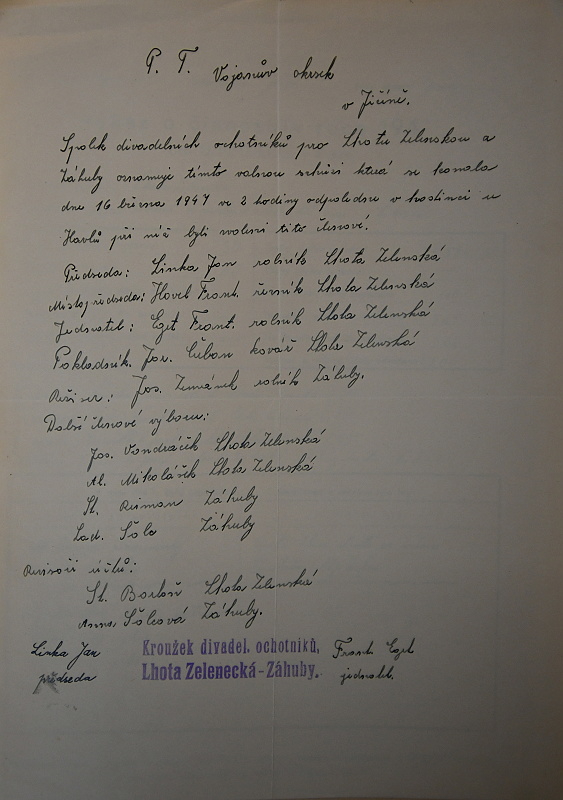 P. T.
Vojanův okrsek
v Jičíně.
Spolek divadelních ochotníků pro Lhotu Zelenskou a
Záhuby oznamuje tímto valnou schůzi která se konala
dne 16 března 1947 ve 2 hodiny odpoledne v hostinci u
Havlů při níž byli voleni tito členové.
Předseda: Linka Jan rolník Lhota Zelenská
Místopředseda: Havel Frant. řezník Lhota Zelenská
Jednatel: Egrt Frant. rolník Lhota Zelenská
Pokladník. Jar. Čeban kovář Lhota Zelenská
Režiser: Jos. Zemánek rolník Záhuby.
Další členové výboru:
Jos. Vondráček Lhota Zelenská
Al. Mikolášek Lhota Zelenská
St. Záhuby
Lad. Šolc Záhuby
Revisoři účtů:
St. Bartoš Lhota Zelenská
Anna Šolcová Záhuby.
Linka Jan
předseda
Kroužek divadel. ochotníků,
Lhota Zelenecká-Záhuby.
Frant Egrt
jednatel.